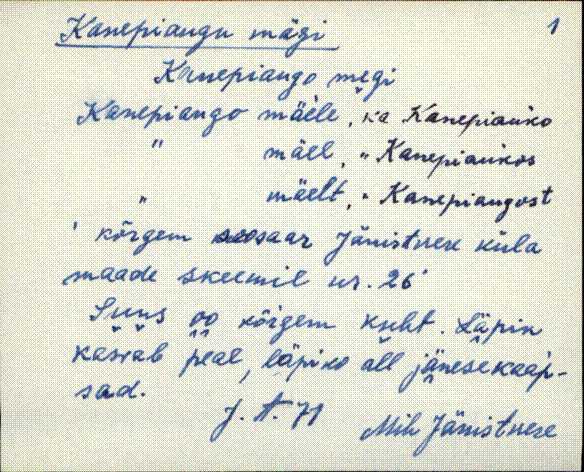 Kanepiangu mägi 1
Kanepiango mägi
Kanepiango mäele, ka Kanepianko
" mäel, " Kanepiankos
" mäelt, " Kanepiangost
' kõrgem soosaar Jänistvere küla
maade skeemil nr. 26'
Suus oo kõigem kuht. Läpin
kasvab peal, läpiko all jänesekaap-
sad.
J. A. 71
Mih Jänistvere